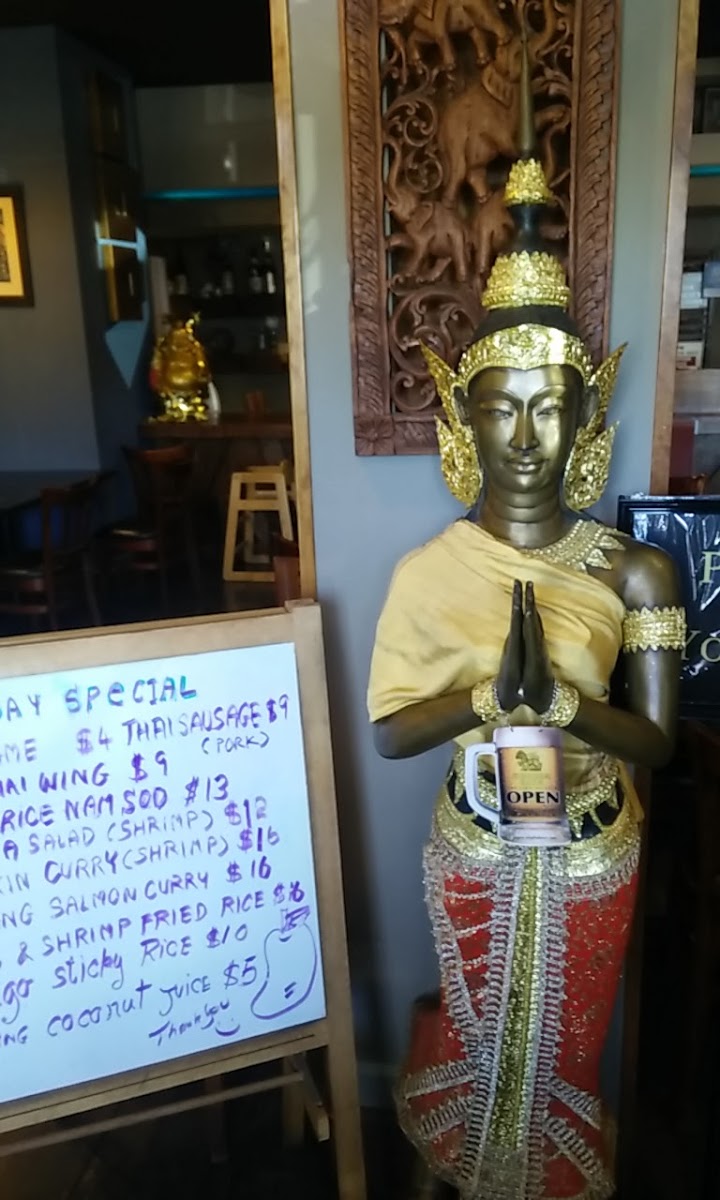 AY SPECIAL
ME $4 THAI SAUSAGE $9
(PORK)
AI WING $9
RICE NAM SOD $13
A SALAD (SHRIMP) $12
IN CURRY (SHRIMP) $16
NG SALMON CURRY $16
& SHRIMP FRIED RICE
go sticky RICE $10
NG coconut JUICE $5
Thank you
OPEN
P
Yo